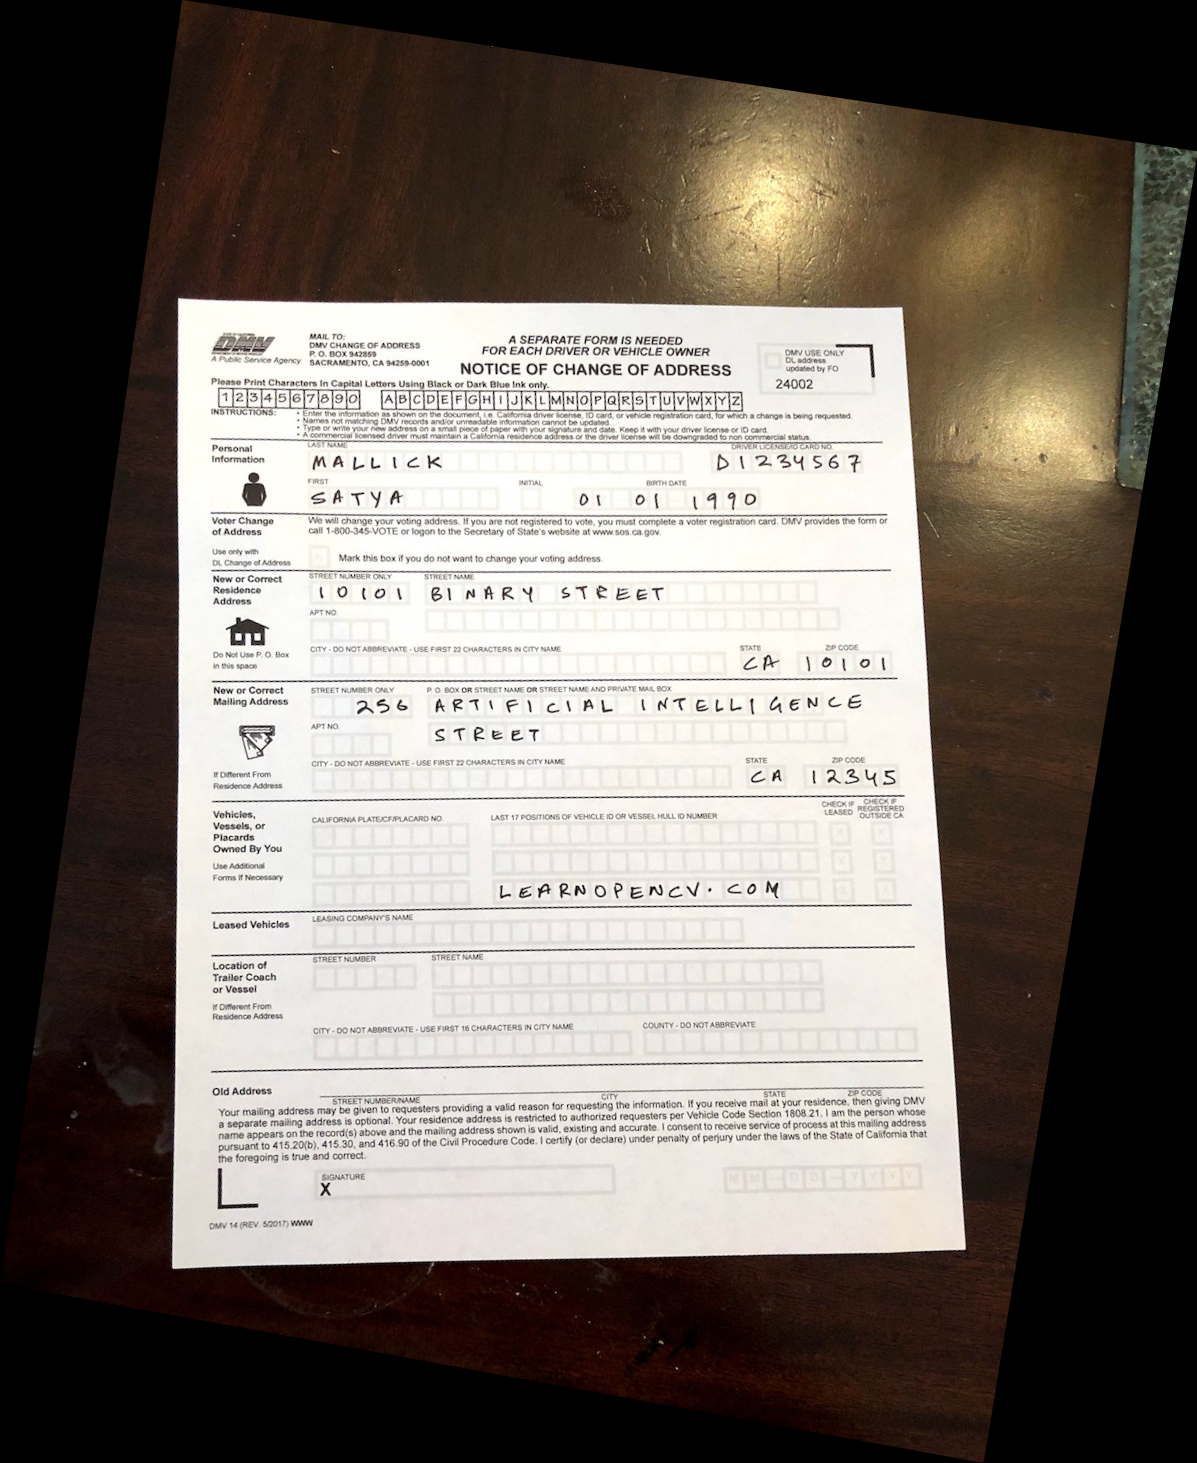 DMV
A Public Service Agency
MAIL TO:
DMV CHANGE OF ADDRESS
P. O. BOX 942859
SACRAMENTO, CA 94259-0001
A SEPARATE FORM IS NEEDED
FOR EACH DRIVER OR VEHICLE OWNER
NOTICE OF CHANGE OF ADDRESS
DMV USE ONLY
DL address
updated by FO
24002
Please Print Characters In Capital Letters Using Black or Dark Blue Ink only.
1234567890 ABCDEFGHIJKLMNOPQRSTUVWXYZ
INSTRUCTIONS:
• Enter the information as shown on the document, i.e. California driver license, ID card, or vehicle registration card, for which a change is being requested.
• Names not matching DMV records and/or unreadable information cannot be updated.
• Type or write your new address on a small piece of paper with your signature and date. Keep it with your driver license or ID card.
• A commercial licensed driver must maintain a California residence address or the driver license will be downgraded to non commercial status.
Personal
Information
LAST NAME
DRIVER LICENSE/ID CARD NO.
MALLICK D1234567
FIRST INITIAL BIRTH DATE
SATYA 01 01 1990
Voter Change
of Address
We will change your voting address. If you are not registered to vote, you must complete a voter registration card. DMV provides the form or
call 1-800-345-VOTE or logon to the Secretary of State's website at www.sos.ca.gov.
Use only with
DL Change of Address
Mark this box if you do not want to change your voting address.
New or Correct
Residence
Address
STREET NUMBER ONLY STREET NAME
10101 BINARY STREET
APT NO.
Do Not Use P. O. Box
in this space
CITY - DO NOT ABBREVIATE - USE FIRST 22 CHARACTERS IN CITY NAME STATE ZIP CODE
CA 10101
New or Correct
Mailing Address
STREET NUMBER ONLY P. O. BOX OR STREET NAME OR STREET NAME AND PRIVATE MAIL BOX
256 ARTIFICIAL INTELLIGENCE
APT NO.
STREET
If Different From
Residence Address
CITY - DO NOT ABBREVIATE - USE FIRST 22 CHARACTERS IN CITY NAME STATE ZIP CODE
CA 12345
Vehicles,
Vessels, or
Placards
Owned By You
Use Additional
Forms If Necessary
CALIFORNIA PLATE/CF/PLACARD NO. LAST 17 POSITIONS OF VEHICLE ID OR VESSEL HULL ID NUMBER
CHECK IF
LEASED
CHECK IF
REGISTERED
OUTSIDE CA
X X
X X
LEARNOPENCV.COM X X
Leased Vehicles
LEASING COMPANY'S NAME
Location of
Trailer Coach
or Vessel
If Different From
Residence Address
STREET NUMBER STREET NAME
CITY - DO NOT ABBREVIATE - USE FIRST 16 CHARACTERS IN CITY NAME COUNTY - DO NOT ABBREVIATE
Old Address
STREET NUMBER/NAME CITY STATE ZIP CODE
Your mailing address may be given to requesters providing a valid reason for requesting the information. If you receive mail at your residence, then giving DMV
a separate mailing address is optional. Your residence address is restricted to authorized requesters per Vehicle Code Section 1808.21. I am the person whose
name appears on the record(s) above and the mailing address shown is valid, existing and accurate. I consent to receive service of process at this mailing address
pursuant to 415.20(b), 415.30, and 416.90 of the Civil Procedure Code. I certify (or declare) under penalty of perjury under the laws of the State of California that
the foregoing is true and correct.
SIGNATURE
X
MM-DD-YYYY
DMV 14 (REV. 5/2017) WWW